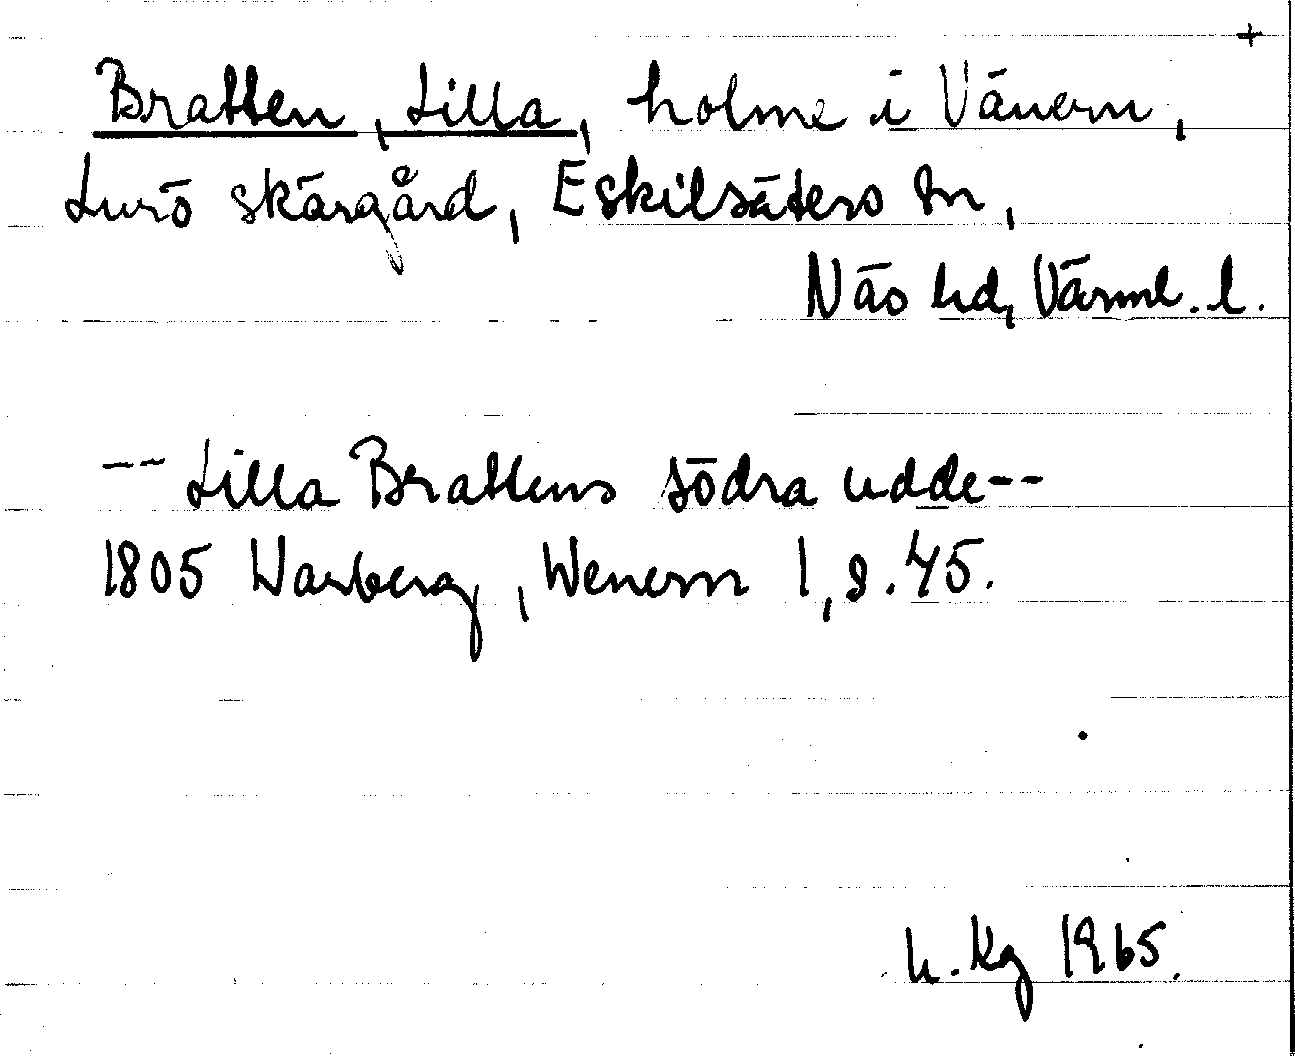 +
Bratten, Lilla, holme i Vänern,
Lurö skärgård, Eskilsäters sn,
Näs hd, Värml. l.
-- Lilla Brattens södra udde --
1805 Warberg, Wenern 1, s. 45.
h. Kg 1965.